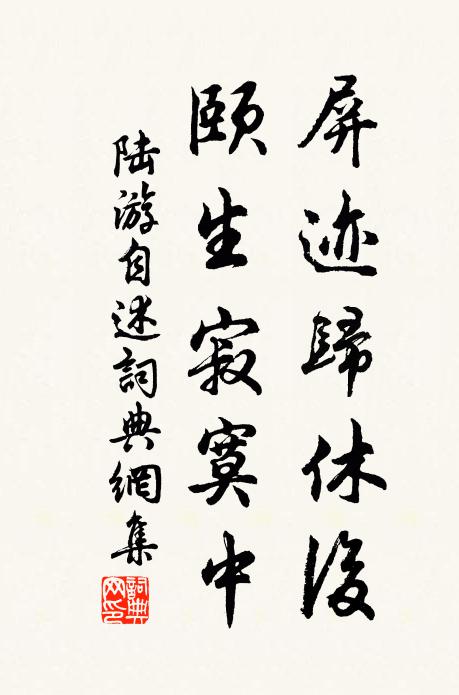 屏迹歸休後
頤生寂寞中
陆游自述詞典網集
詞典
网印